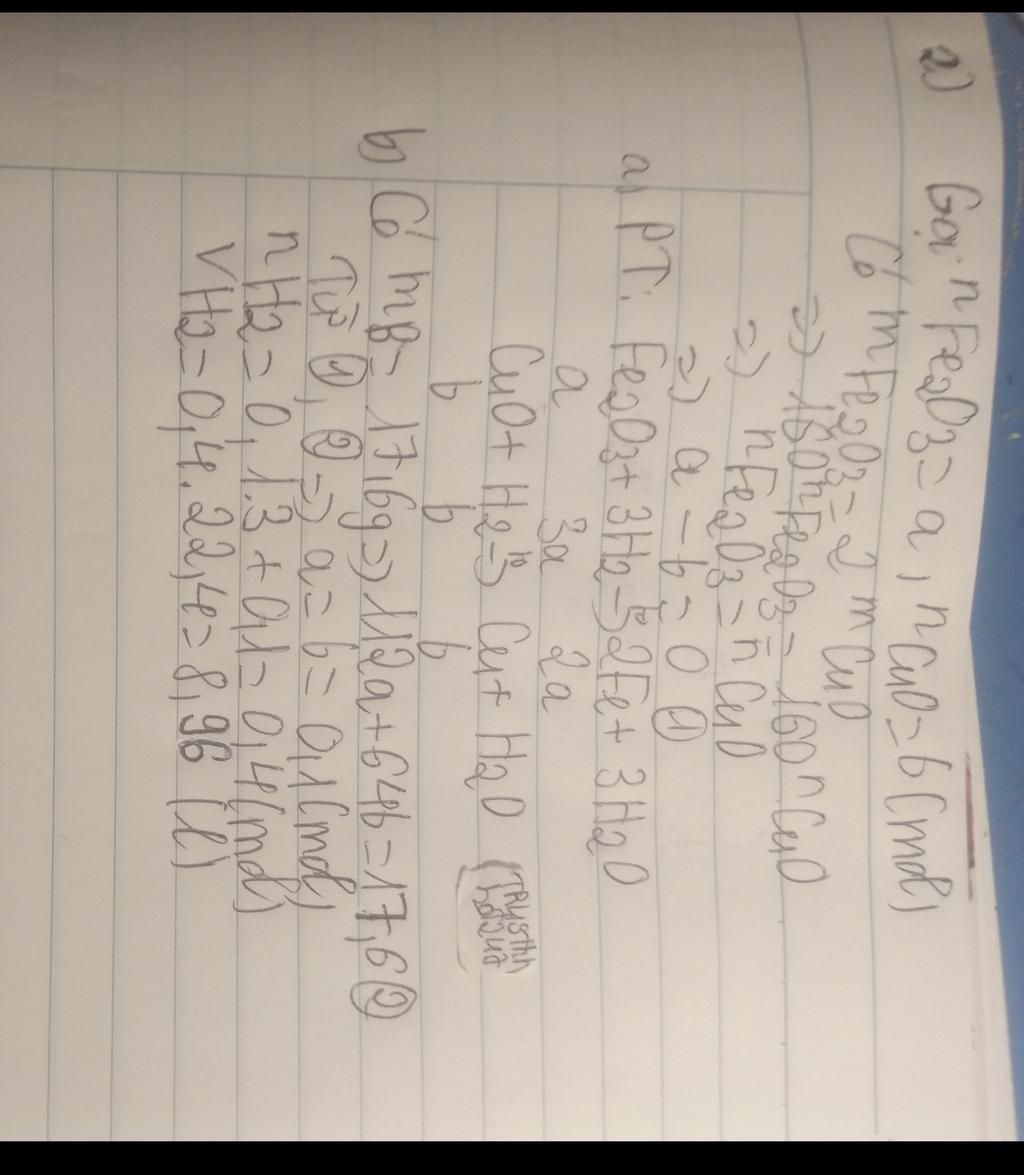 2) Gọi nFe2O3 = a, nCuO = b (mol)
Có mFe2O3 = 2 mCuO
=> 160nFe2O3 = 160nCuO
=> nFe2O3 = nCuO
=> a - b = 0 ①
a, PT: Fe2O3 + 3H2 -to> 2Fe + 3H2O
a 3a 2a
CuO + H2 -to> Cu + H2O
b b b
b Có mB = 17,6g => 112a + 64b = 17,6 ②
Từ ①, ② => a = b = 0,1 (mol)
nH2 = 0,1.3 + 0,1 = 0,4 (mol)
VH2 = 0,4.22,4 = 8,96 (l)